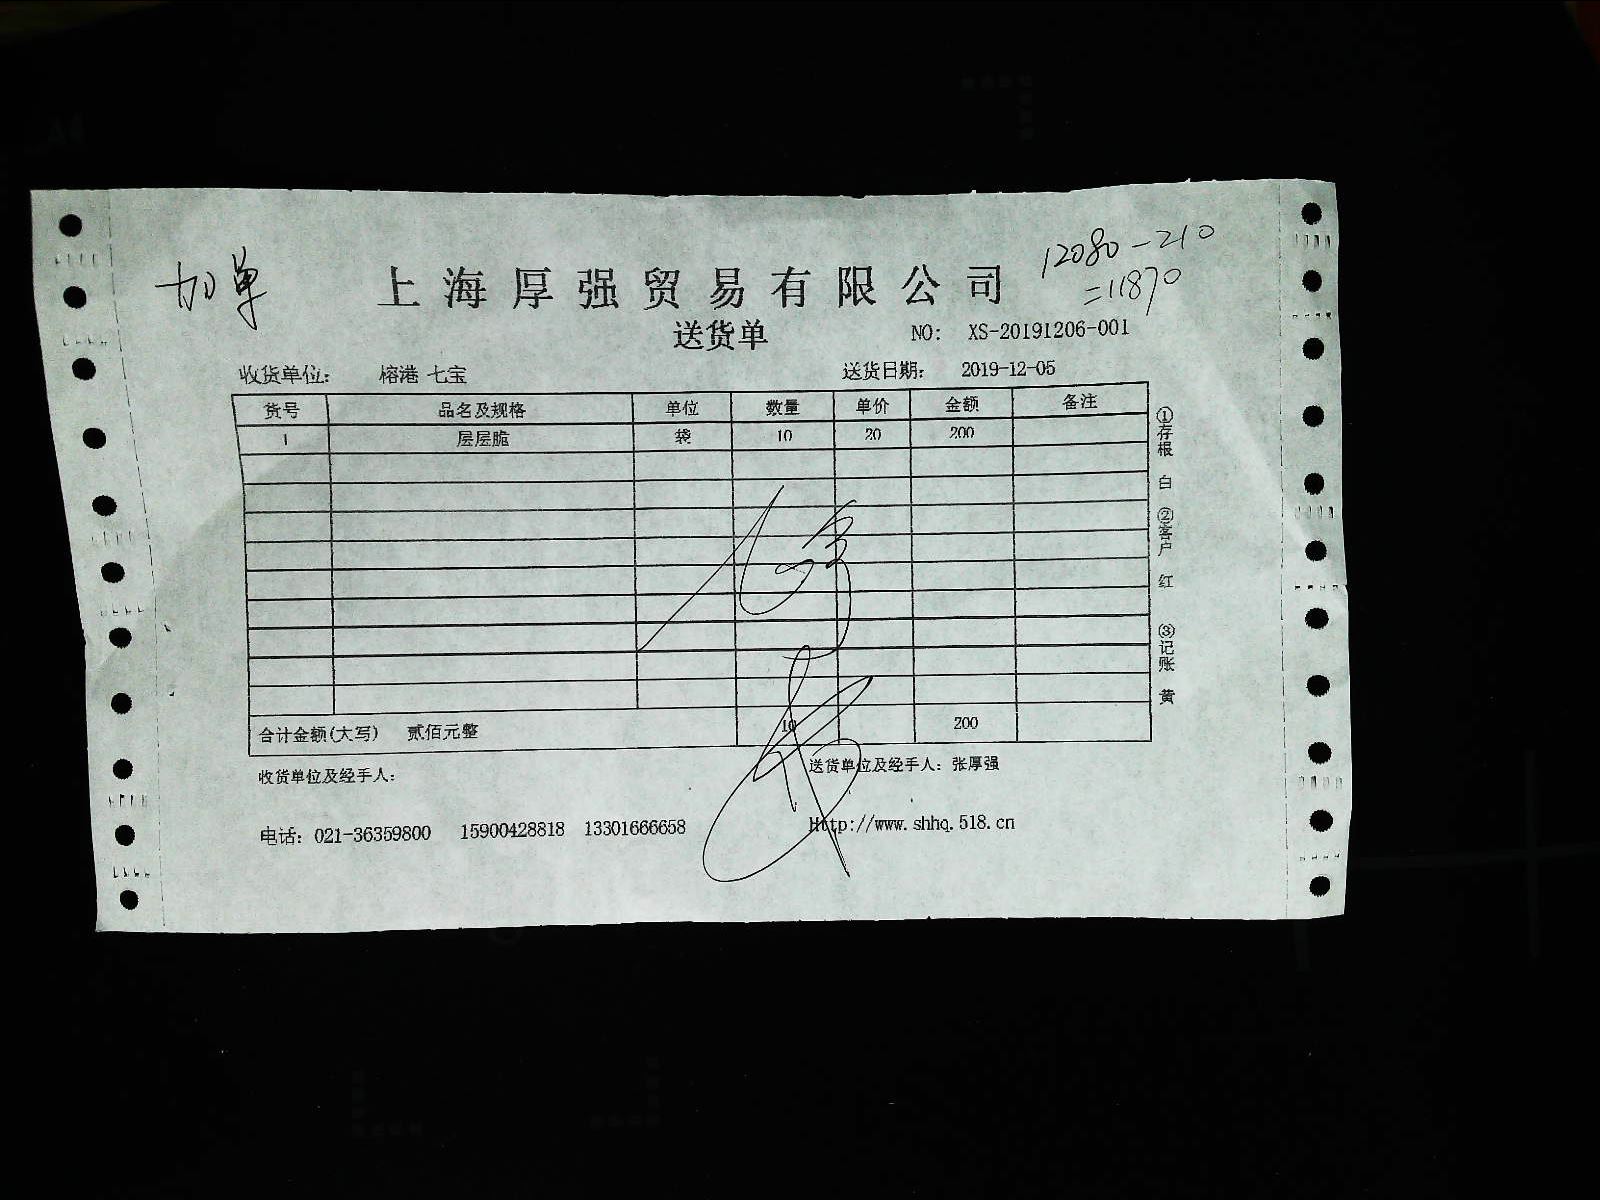 加单
12080-210
=11870
上海厚强贸易有限公司
送货单
NO: XS-20191206-001
收货单位: 榕港 七宝 送货日期: 2019-12-05
货号 品名及规格 单位 数量 单价 金额 备注
1 层层脆 袋 10 20 200
合计金额(大写) 贰佰元整 10 200
①存根 白 ②客户 红 ③记账 黄
收货单位及经手人: 送货单位及经手人: 张厚强
电话: 021-36359800 15900428818 13301666658 Http://www.shhq.518.cn